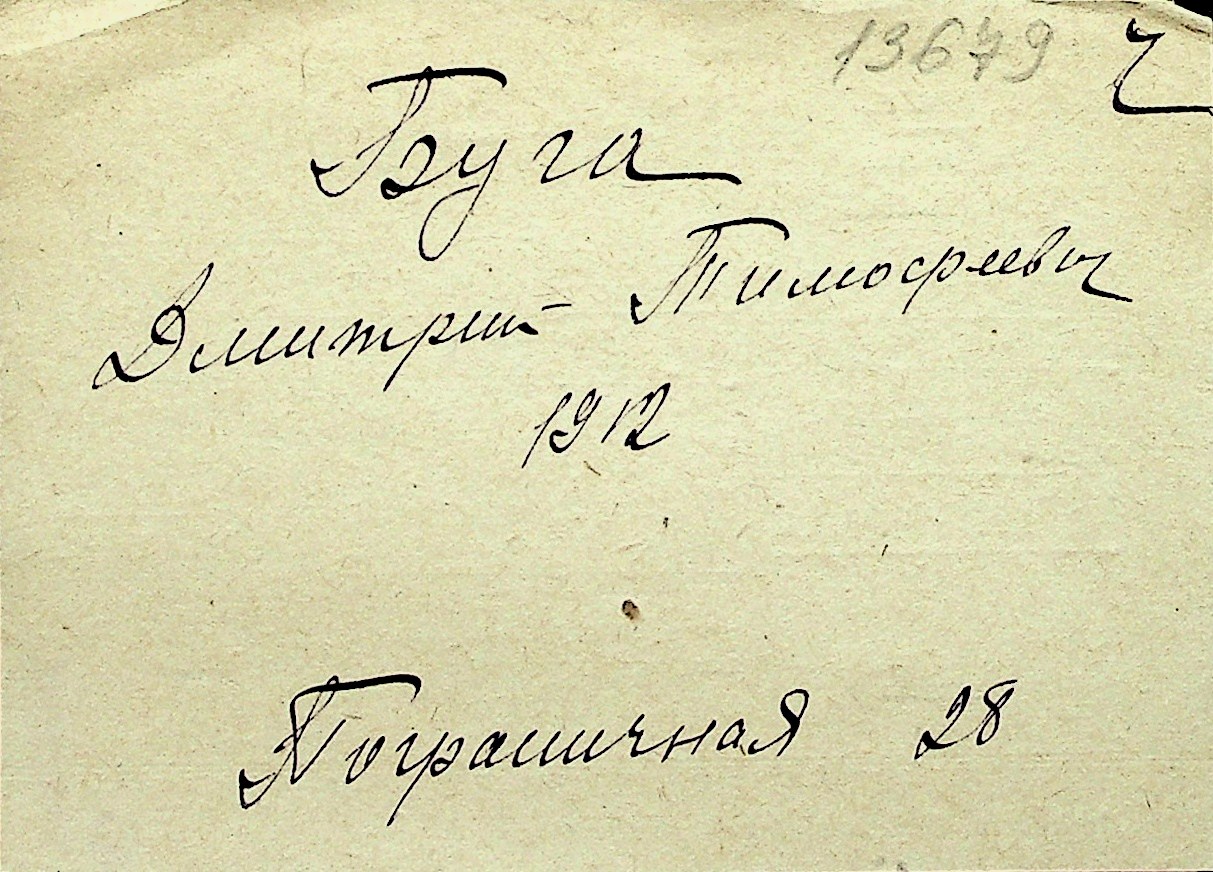 13679 ч
Буга
Дмитрий Тимофеевич
1912
Пограничная 28